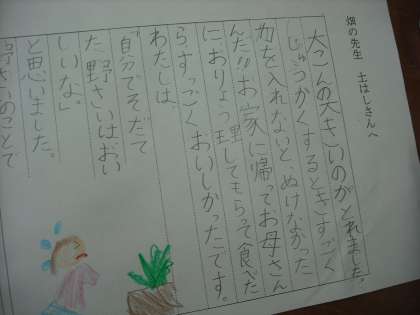 畑の先生　土はしさんへ
大こんの大きいのがとれました。
しゅうかくするときすごく
力を入れないとぬけなかった
んだ!!お家に帰ってお母さん
におりょう理してもらって食べた
らすっごくおいしかったです。
わたしは、
「自分でそだて
た野さいはおい
しいな。」
と思いました。
野さいのことで